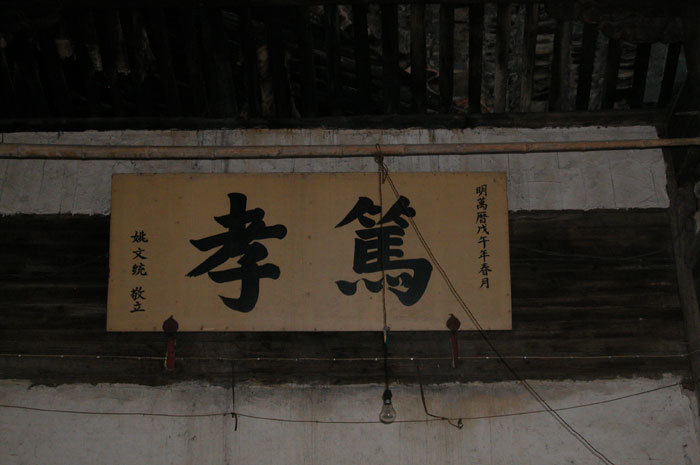 明萬曆戊午年春月
篤孝
姚文統 敬立